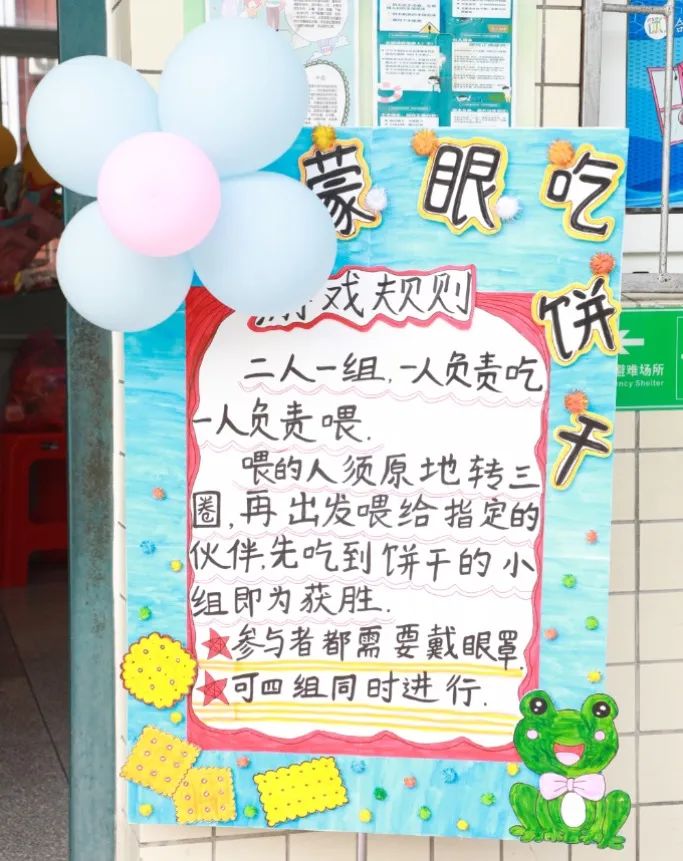 蒙眼吃饼干
游戏规则
二人一组,一人负责吃
一人负责喂.
喂的人须原地转三
圈,再出发喂给指定的
伙伴,先吃到饼干的小
组即为获胜.
★参与者都需要戴眼罩.
★可四组同时进行.
避难场所
ncy Shelter